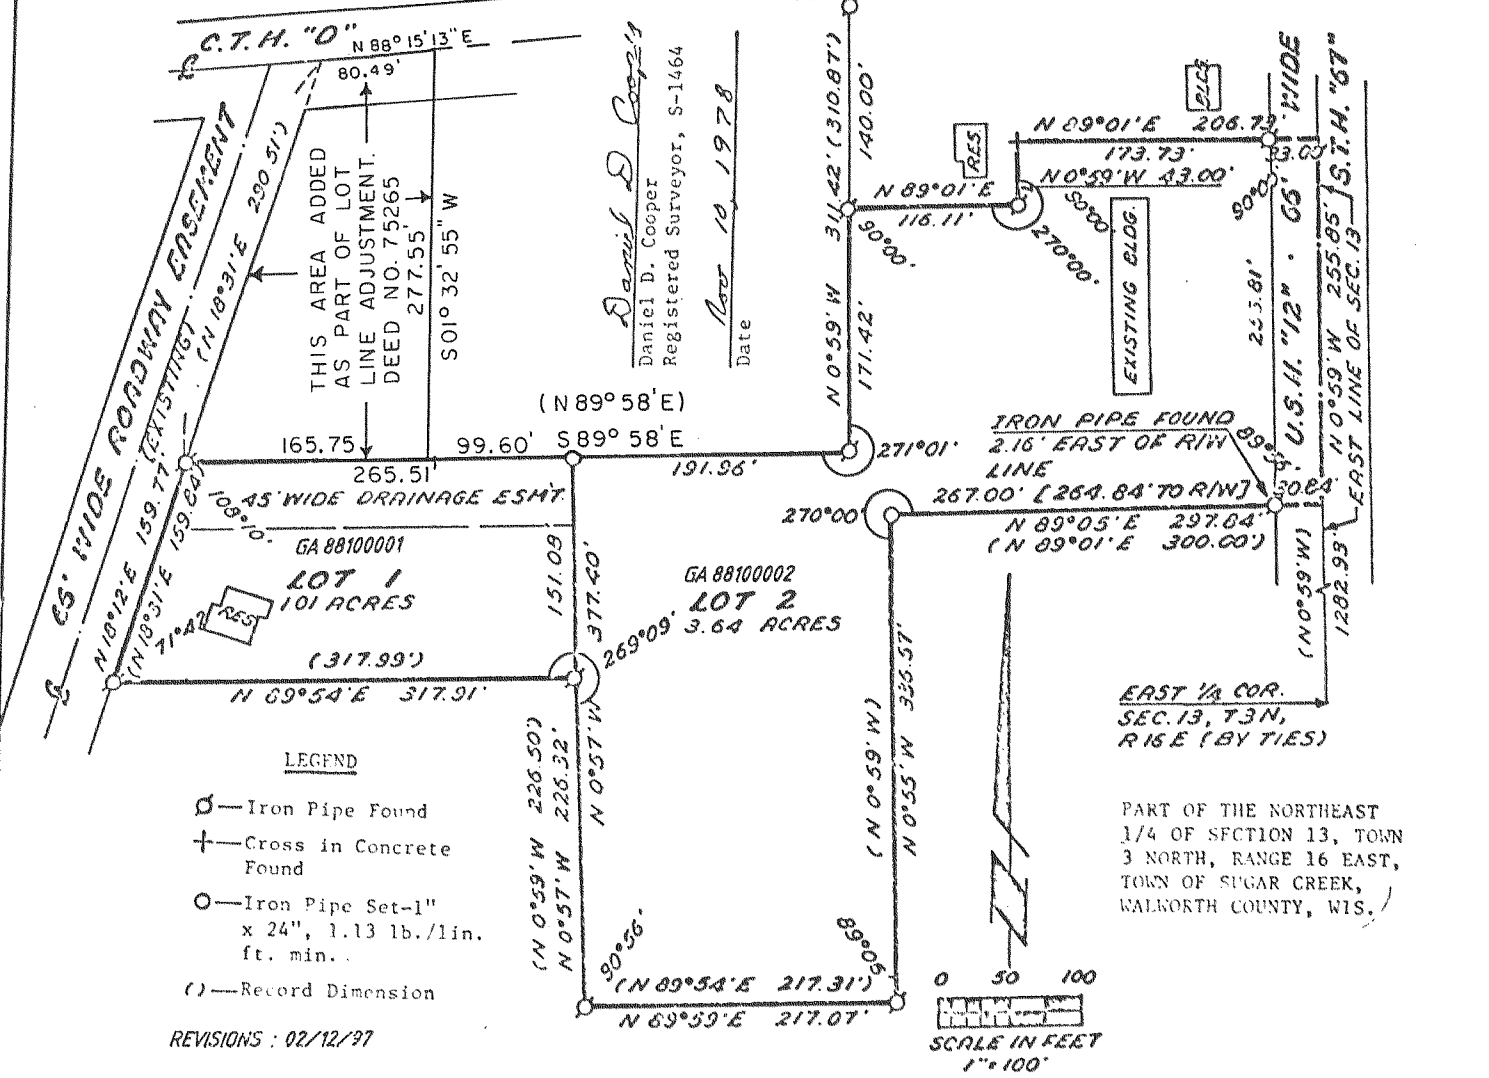 C.T.H. "O"
N 88° 15' 13" E
80.49'
66' WIDE ROADWAY EASEMENT
(EXISTING)
(N 18°31'E 290.51')
THIS AREA ADDED
AS PART OF LOT
LINE ADJUSTMENT.
DEED NO. 75265
277.55'
S01° 32' 55" W
Daniel D Cooper
Daniel D. Cooper
Registered Surveyor, S-1464
Nov 10, 1978
Date
311.42' (310.87')
140.00'
N 0°59' W
171.42'
RES.
BLDG.
N 89°01'E 206.73'
173.73'
33.00'
N 0°59'W 43.00'
N 89°01'E
116.11'
90°00'
270°00'
90°00'
90°00'
EXISTING BLDG.
255.81'
U.S.H. "12" · 66' WIDE
S.T.H. "67"
N 0°59' W 255.85'
EAST LINE OF SEC. 13
(N 89° 58' E)
165.75
99.60'
S 89° 58' E
265.51'
191.96'
271°01'
IRON PIPE FOUND
2.16' EAST OF R/W
LINE
30.84'
267.00' [264.84' TO R/W]
N 89°05'E 297.84'
(N 89°01'E 300.00')
270°00'
45' WIDE DRAINAGE ESMT.
108°10'
N 18°12'E 159.77'
(N 18°31'E 159.84')
GA 88100001
LOT 1
1.01 ACRES
RES.
71°42'
(317.99')
N 89°54'E 317.91'
151.08
377.40'
269°09'
GA 88100002
LOT 2
3.64 ACRES
(N 0°59'W)
1282.93'
EAST 1/4 COR.
SEC. 13, T3N,
R16E (BY TIES)
(N 0°59'W 226.50')
N 0°57'W 226.32'
N 0°57'W
(N 0°59'W)
N 0°55'W 336.57'
90°56'
(N 89°54'E 217.31')
N 89°59'E 217.07'
LEGEND
Iron Pipe Found
Cross in Concrete
Found
Iron Pipe Set-1"
x 24", 1.13 lb./lin.
ft. min.
( )—Record Dimension
REVISIONS : 02/12/97
PART OF THE NORTHEAST
1/4 OF SECTION 13, TOWN
3 NORTH, RANGE 16 EAST,
TOWN OF SUGAR CREEK,
WALWORTH COUNTY, WIS.
0 50 100
SCALE IN FEET
1"=100'